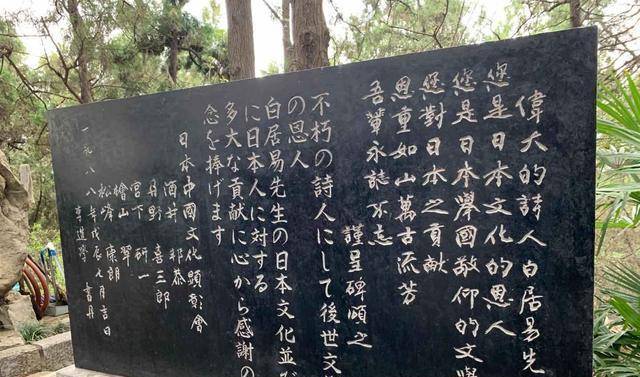 偉大的詩人白居易先
您是日本文化的恩人
您是日本舉國敬仰的文學
您對日本之貢献
恩重如山萬古流芳
吾輩永誌不忘
謹呈碑頌之
不朽の詩人にして後世文
の恩人
白居易先生の日本文化並び
に日本人に対する
多大な貢献に心から感謝の
念を捧げます
日本中國文化顕彰會
酒井 邦恭
丹野 喜三郎
宮下 研一
檜山 翠
松澤 康朗
一九八八年戊辰七月吉日
書丹